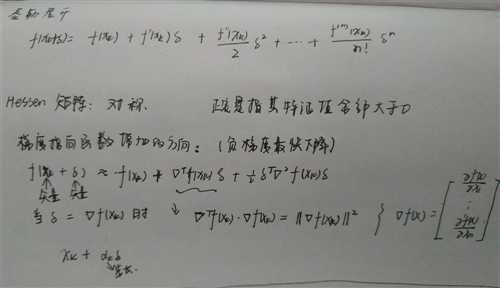 泰勒展开
f(xk+δ) = f(xk) + f'(xk) δ + f''(xk)/2 δ² + ⋯ + f⁽ⁿ⁾(xk)/n! δⁿ
Hessen 矩阵: 对称. 正定是指其特征值全部大于0
梯度指向函数增加的方向: (负梯度最快下降)
f(xk + δ) ≈ f(xk) + ∇ᵀf(xk) δ + ½ δᵀ∇²f(xk) δ
矢量 矢量
当 δ = ∇f(xk) 时 ↓ ∇ᵀf(xk)·∇f(xk) = ‖∇f(xk)‖² } ∇f(x) = [∂f(x)/∂x₁ ⋮ ∂f(x)/∂xn]
xk + αk δ
步长.